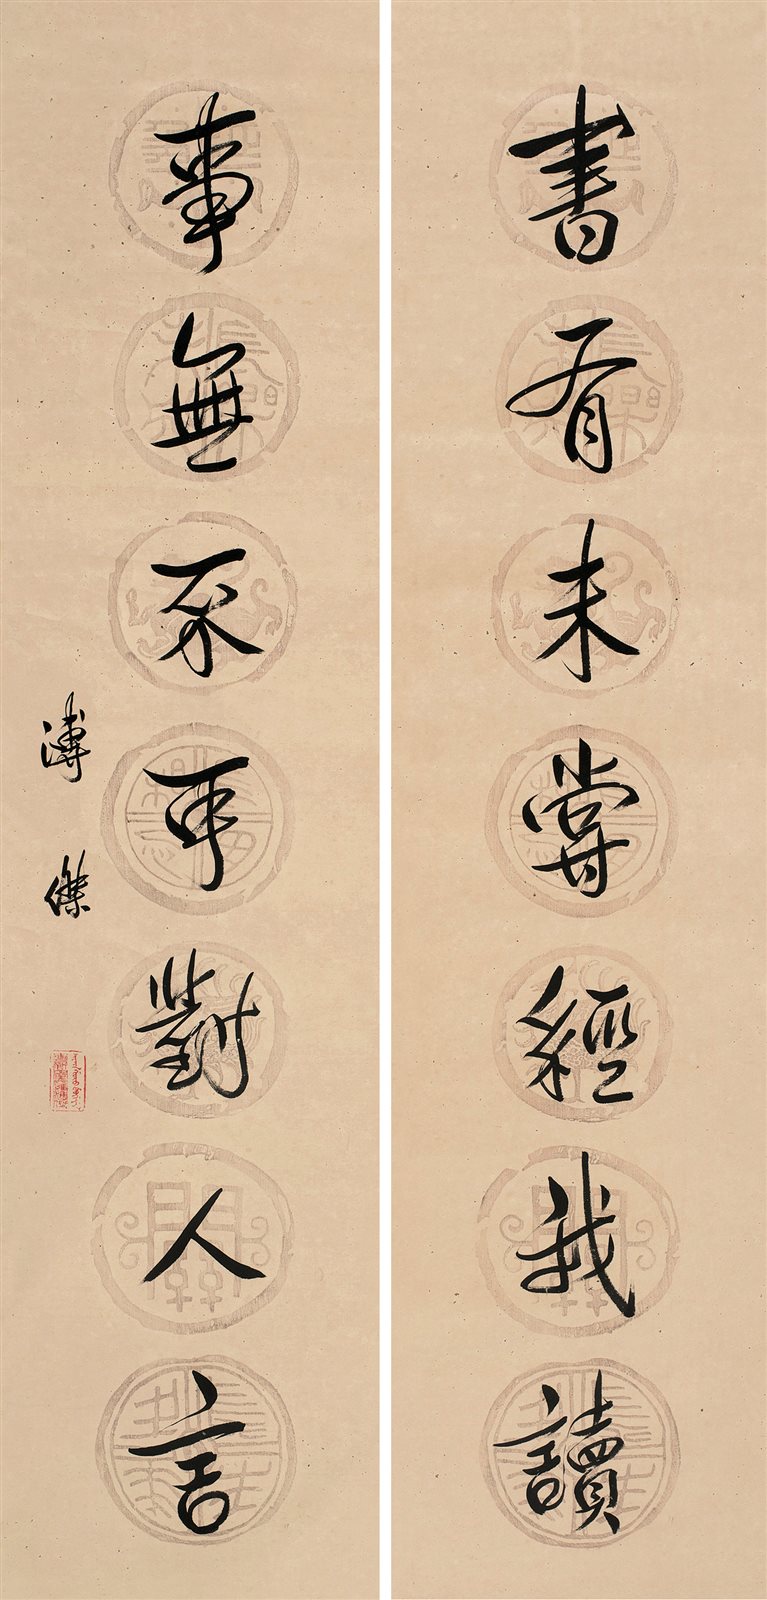 書有未嘗經我讀
事無不可對人言
溥傑